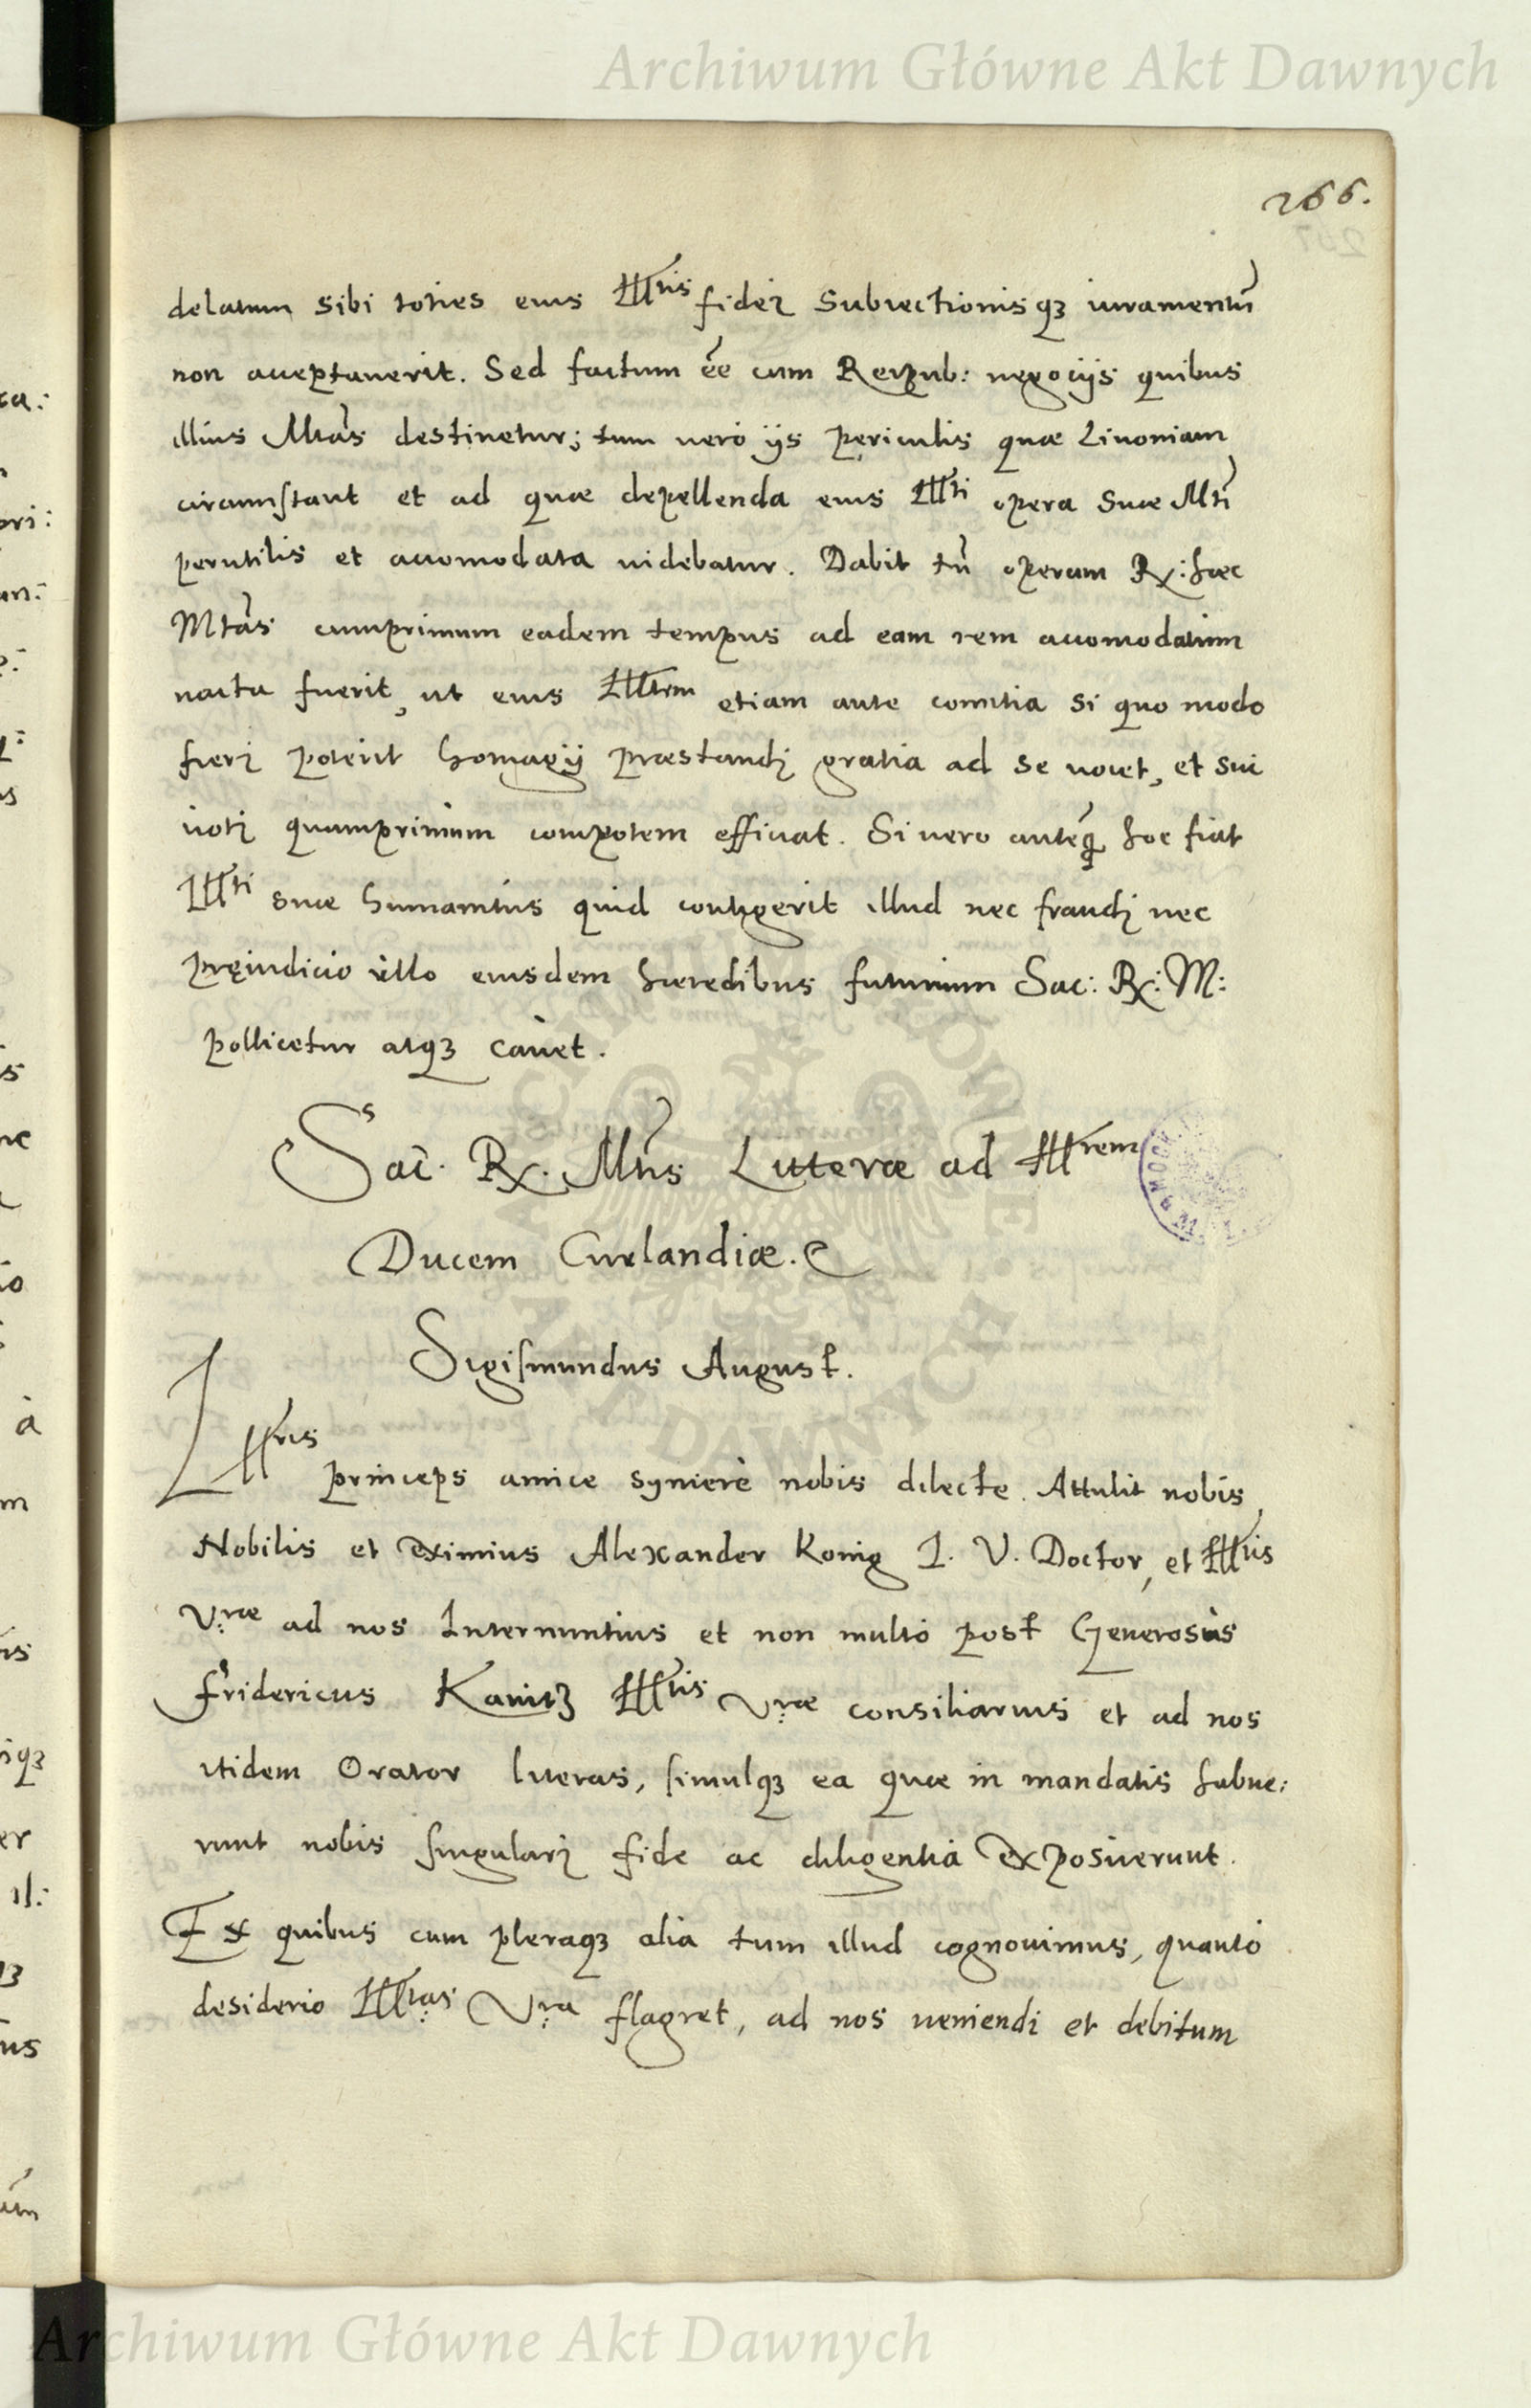 Archiwum Główne Akt Dawnych
266.
delatum sibi toties eius Illtis fidei subiectionisqȝ iuramentū
non acceptauerit. Sed factum ēe cum Reipub: negocijs quibus
illius Mtās destinetur; tum uerò ijs periculis quæ Liuoniam
circumstant et ad quæ depellenda eius Illti opera suæ Mti
perutilis et accomodata uidebatur. Dabit tñ operam R: hæc
Mtās cumprimum eadem tempus ad eam rem accomodatum
nacta fuerit, ut eius Illtem etiam ante comitia si quo modo
fieri poterit homagij præstandi gratia ad se uocet, et sui
uoti quamprimum compotem efficiat. Si uero anteq̃ hoc fiat
Illti suæ humanitus quid contigerit illud nec fraudi nec
pręiudicio ullo eiusdem hæredibus futurum Sac: R: M:
pollicetur atqȝ cauet.
Sac. R. Mtis Litteræ ad Illrem
Ducem Curlandiæ.
Sigismundus August.
Illris princeps amice syncerè nobis dilecte. Attulit nobis
Nobilis et eximius Alexander Konig I. V. Doctor, et Illtis
Vræ ad nos Internuntius et non multò post Generosus
Fridericus Kanitȝ Illtis Vræ consiliarius et ad nos
itidem Orator literas, simulqȝ ea quæ in mandatis habue:
runt nobis singulari fide ac diligentia exposuerunt.
Ex quibus cum pleraqȝ alia tum illud cognouimus, quanto
desiderio Illtas Vra flagret, ad nos ueniendi et debitum
Archiwum Główne Akt Dawnych